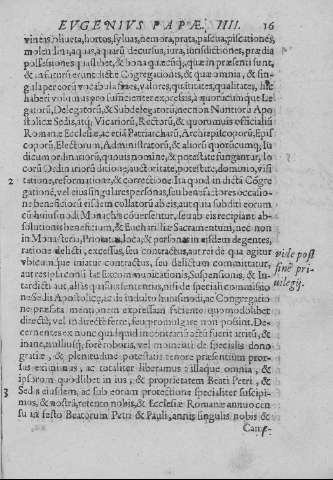 EVGENIVS PAPÆ IIII. 16
vineis, oliueta, hortos, syluas, nemora, prata, pascua, piscationes,
molendini, aquas, aquarū decursus, iura, iurisdictiones, prædia
possessiones quaslibet, & bona quæcūq; quæ in præsenti sunt,
& in futurū erunt dictæ Congregationis, & quæ omnia, & sin-
gula per eorū vocabula fines, valores, quātitates, qualitates, hic
haberi volumus pro sufficienter expressis, à quorūcumque Le-
gatorū, Delegatorū, & Subdelegatorū, necnon Nuntiorū Apo-
stolicæ Sedis, atq; Vicariorū, Rectorū, & quorumuis officialiū
Romanæ Ecclesiæ, ac etiā Patriarcharū, Archiepiscoporū, Epis-
coporū, Electorum, Administratorū, & aliorū quorūcumq; Iu-
dicum ordinariorū, quouis nomine, & potestate fungantur, lo-
corū Ordinariorū ditione, auctoritate, potestate, dominio, visi
2 tatione, reformatione, & correctione. Ita quod in dicta Congre
gatione, vel eius singulares personas, seu benefactores occasio-
ne beneficiorū eisdem collatorū ab eis, aut quia subditi eorum
cū huiusmodi Monachis cōuersentur, seu ab eis recipiant ab-
solutionis beneficium, & Eucharistiæ Sacramentum, nec non
in Monasteria, Prioratus, loca, & personas in eisdem degentes,
ratione delicti, excessus, seu contractus, aut rei de qua agitur
vbicumque iniatur contractus, seu delictum committatur,
aut res ipsa consistat Excommunicationis, Suspensionis, & In-
terdicti aut alias quasuis sententias, nisi de speciali commissio
ne Sedis Apostolicæ, ac de indulto huiusmodi, ac Congregatio
ne præfata mentionem expressam faciente, quomodolibet
directè, vel indirectè ferre, seu promulgare non possint. De-
cernentes ex nunc quicquid in contrariū actū fuerit irritū, &
inane, nulliusq; fore roboris, vel momenti de specialis dono
gratiæ, & plenitudine potestatis tenore præsentium pror-
sus eximimus, ac totaliter liberamus: illaque omnia, &
ipsorum quodlibet in ius, & proprietatem Beati Petri, &
3 Sedis eiusdem, ac sub eorum protectione specialiter suscipi-
mus, & nostra, retento nobis, & Ecclesiæ Romanæ annuo cen
su in festo Beatorum Petri & Pauli, annis singulis nobis &
Came-
vide post
finē pri-
uilegij.